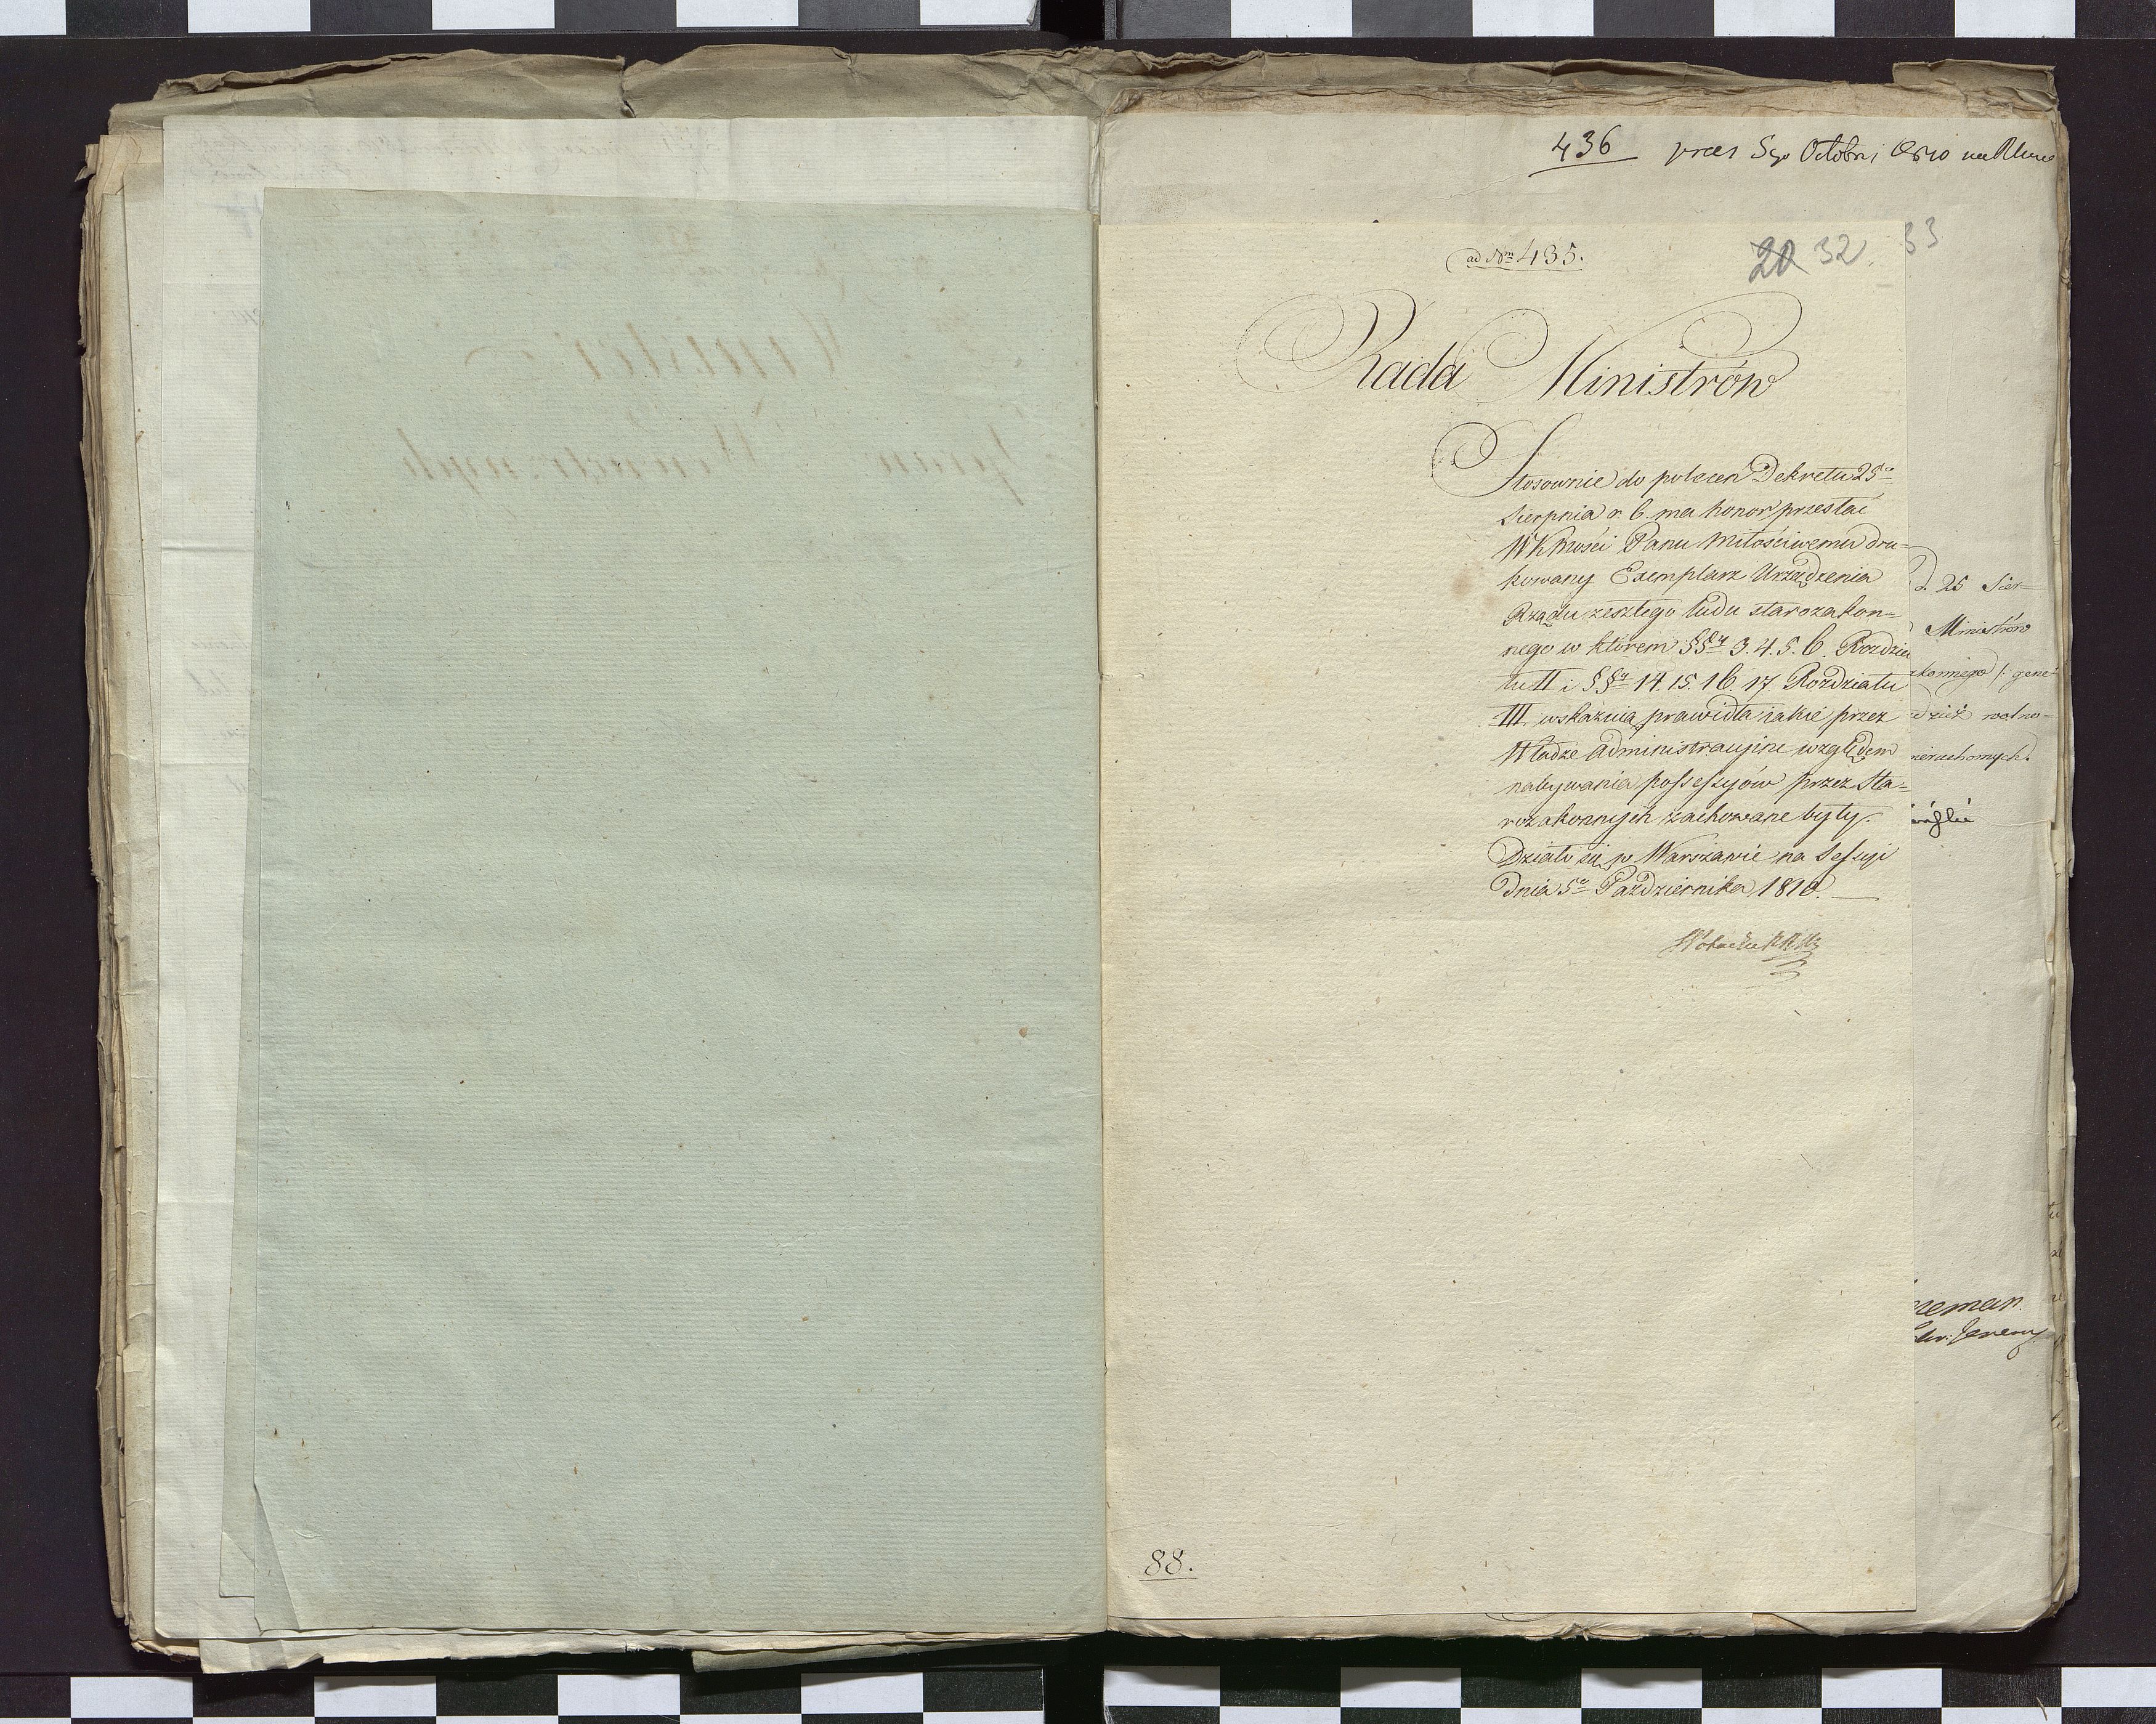 436 praes 5go Octobris
ad Nrm 435.
20 32. 33
Rada Ministrów
Stosownie do poleceń Dekretu 25º
Sierpnia r. b. ma honor przesłać
WKMości Panu Miłościwemu dru-
kowany Exemplarz Urządzenia
Rządu zeszłego ludu starozakon-
nego w którem §§y 3. 4. 5. 6. Rozdzia
łu II i §§y 14. 15. 16. 17. Rozdziału
III. wskazuią prawidła iakie przez
Władze administracyine względem
nabywania possessyów przez Sta-
rozakonnych zachowane były.
Działo się w Warszawie na Sessyi
Dnia 5º Października 1810.
d. 25 Sier-
Ministrów
rolno-
nieruchomych
88.